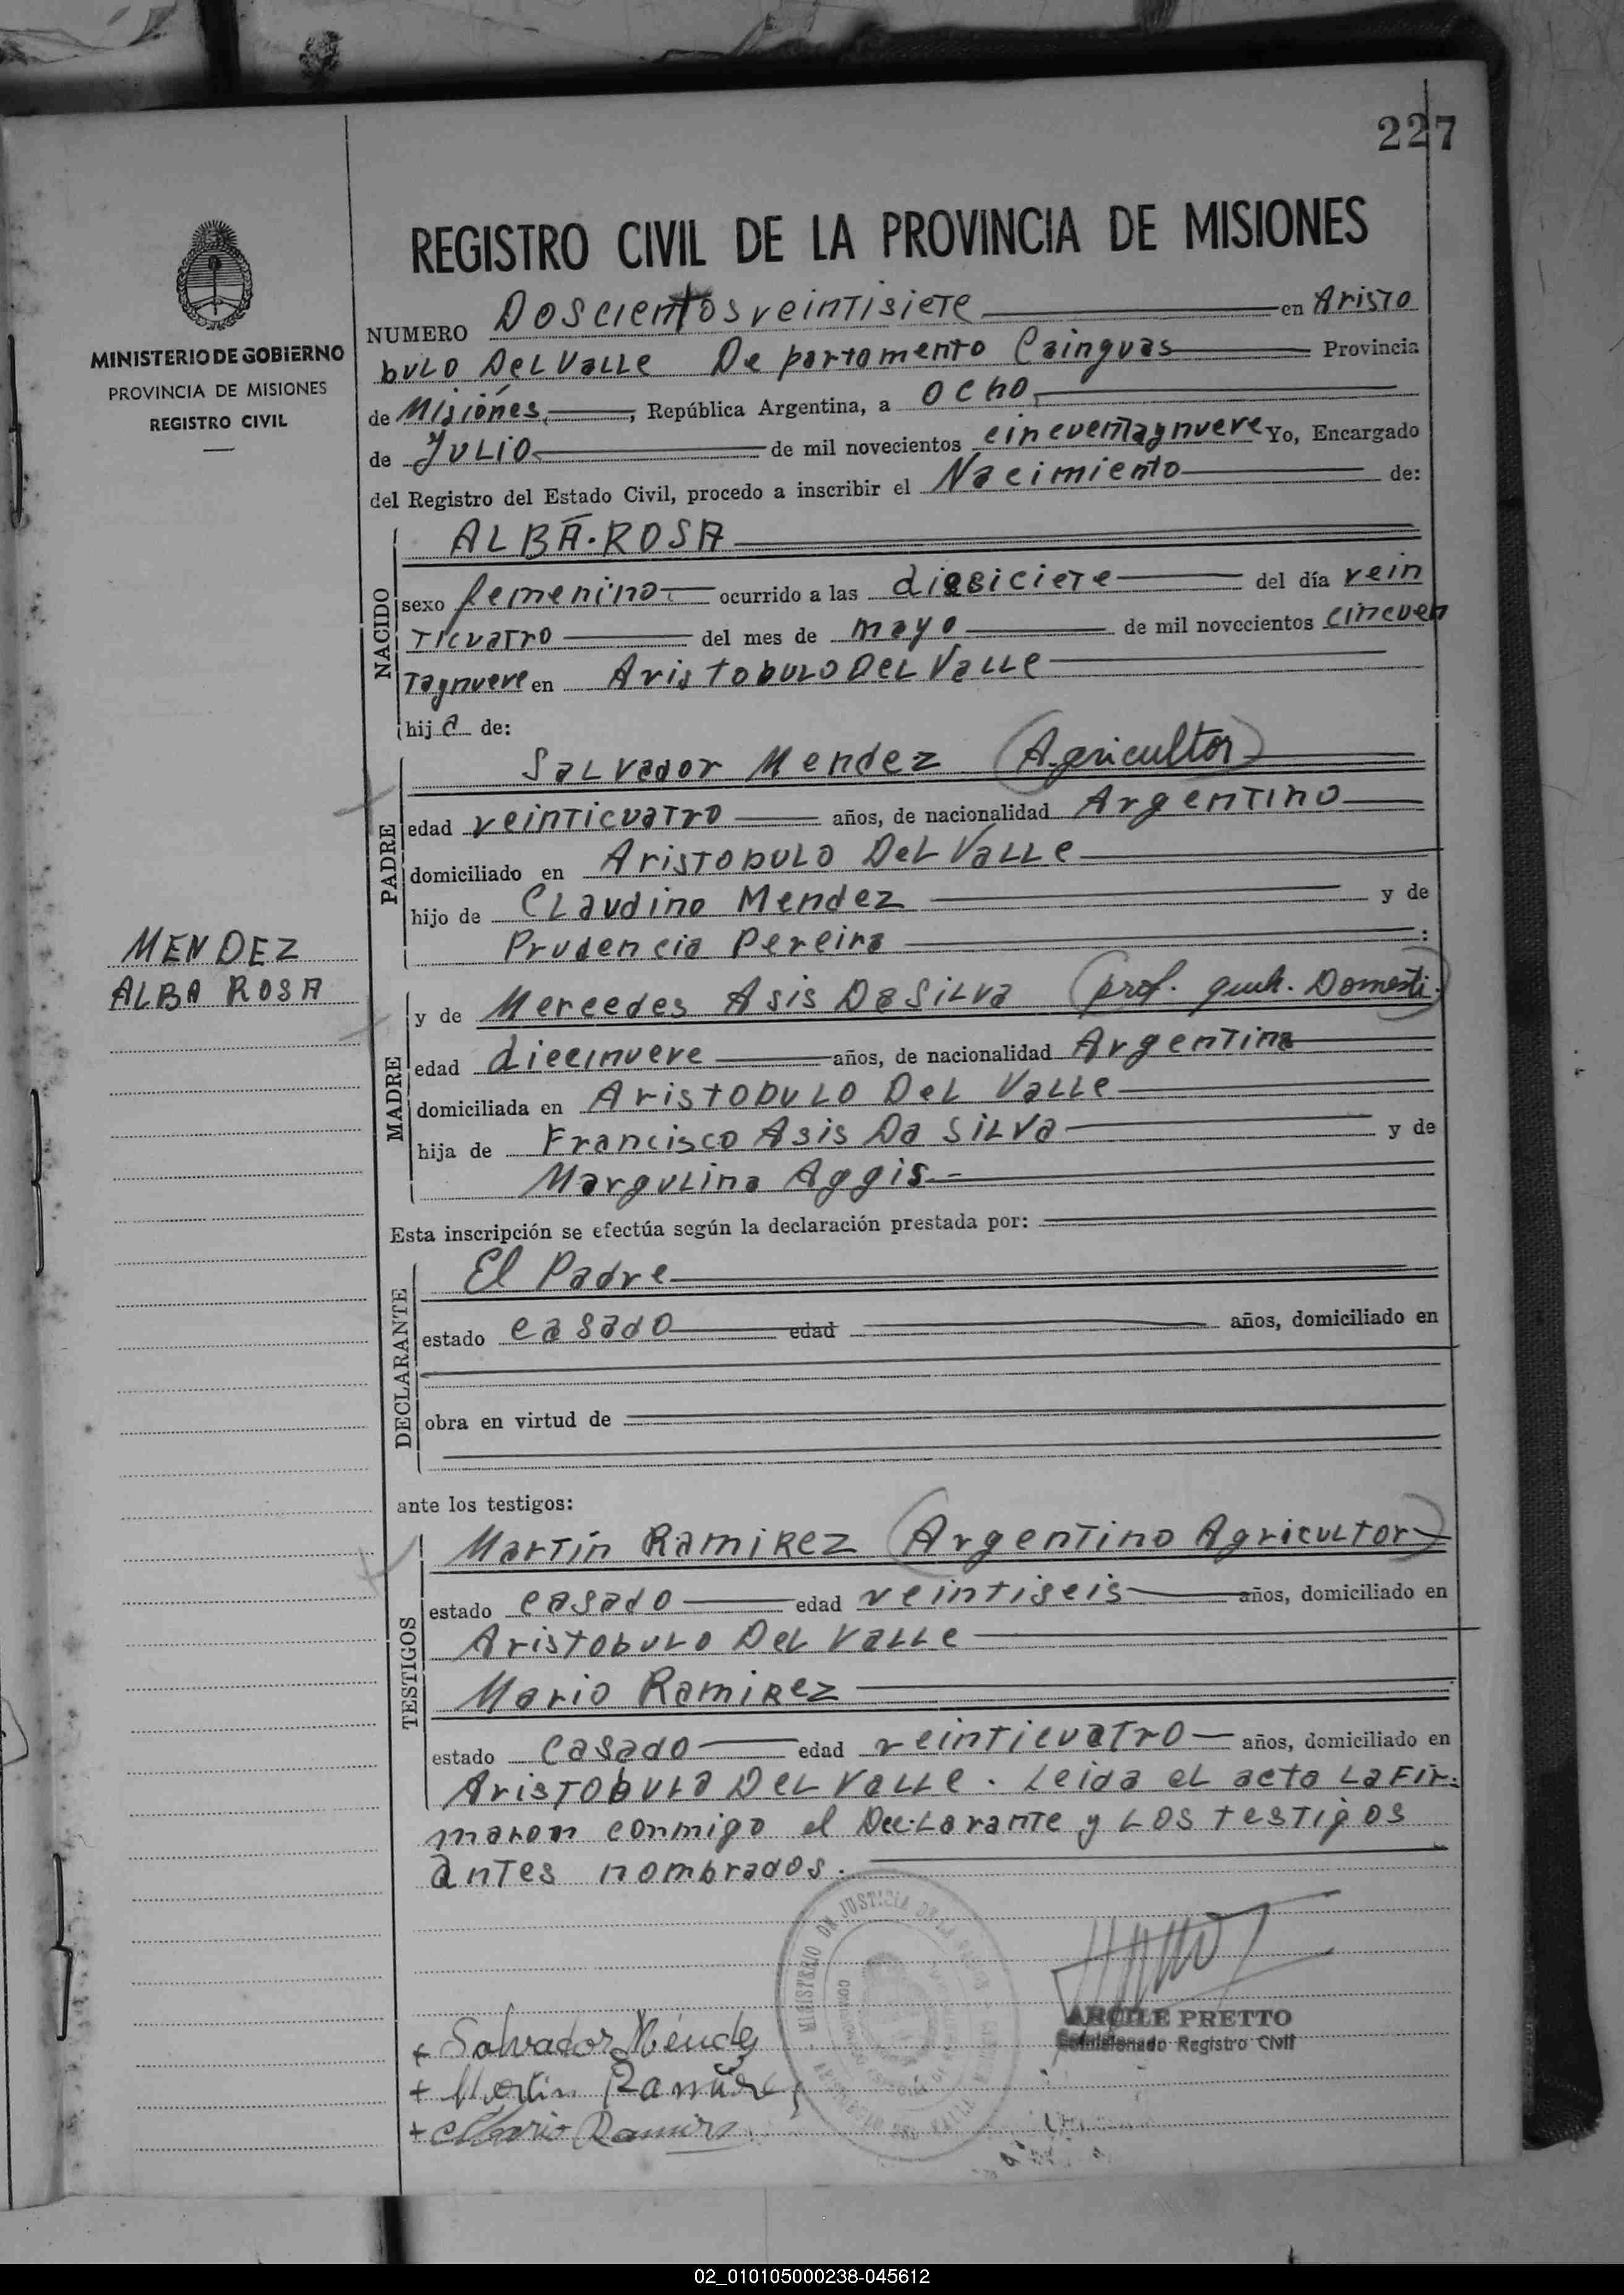 227
REGISTRO CIVIL DE LA PROVINCIA DE MISIONES
MINISTERIO DE GOBIERNO
PROVINCIA DE MISIONES
REGISTRO CIVIL
NUMERO Doscientosveintisiete en Aristo
bulo Del Valle Departamento Cainguas Provincia
de Misiónes, República Argentina, a ocho
de Julio de mil novecientos cincuentaynueve Yo, Encargado
del Registro del Estado Civil, procedo a inscribir el Nacimiento de:
NACIDO
ALBA.ROSA
sexo femenino ocurrido a las diesiciete del día vein
ticuatro del mes de mayo de mil novecientos cincuen
taynueve en Aristobulo Del Valle
hija de:
PADRE
Salvador Mendez (Agricultor)
edad veinticuatro años, de nacionalidad Argentino
domiciliado en Aristobulo Del Valle
hijo de Claudino Mendez y de
Prudencia Pereira :
MENDEZ
ALBA ROSA
MADRE
y de Mercedes Asis Da Silva (prof. queh. Domesti.)
edad diecinueve años, de nacionalidad Argentina
domiciliada en Aristobulo Del Valle
hija de Francisco Asis Da Silva y de
Margulina Aggis.-
Esta inscripción se efectúa según la declaración prestada por:
DECLARANTE
El Padre
estado casado edad años, domiciliado en
obra en virtud de
ante los testigos:
TESTIGOS
Martín Ramirez (Argentino Agricultor)
estado casado edad veintiseis años, domiciliado en
Aristobulo Del Valle
Mario Ramirez
estado casado edad veinticuatro años, domiciliado en
Aristobulo Del Valle. Leida el acta la Fir-
maron conmigo el Declarante y los testigos
antes nombrados.
MINISTERIO DE JUSTICIA DE LA
ARISTOBULO DEL VALLE
ARCILE PRETTO
Comisionado Registro Civil
+ Salvador Méndez
+ Martin Ramirez
+ Mario Ramirez
02_010105000238-045612